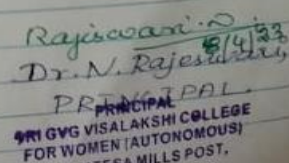 Rajiswari.N
8/4/23
Dr. N. Rajeswari,
PRINCIPAL.
PRINCIPAL
SRI GVG VISALAKSHI COLLEGE
FOR WOMEN (AUTONOMOUS)
ESA MILLS POST,